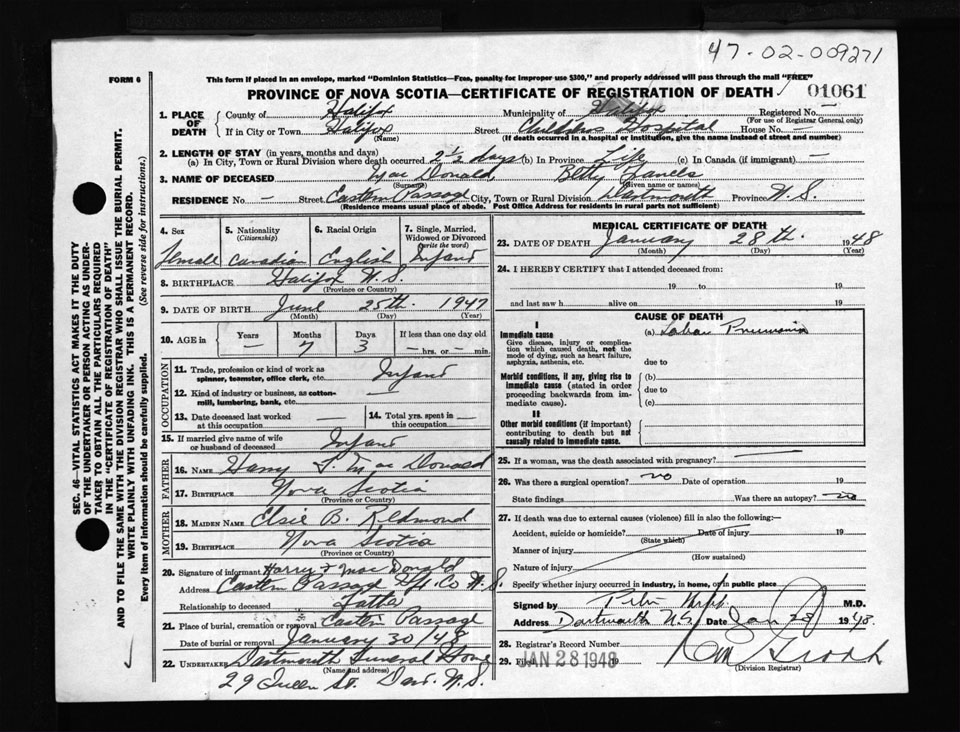 47-02-009271
FORM 6
This form if placed in an envelope, marked "Dominion Statistics—Free, penalty for improper use $300," and properly addressed will pass through the mail "FREE"
PROVINCE OF NOVA SCOTIA—CERTIFICATE OF REGISTRATION OF DEATH
01061
1. PLACE OF DEATH
County of Halifax
Municipality of Halifax
Registered No. —
(For use of Registrar General only)
If in City or Town Halifax
(Name)
Street Childrens Hospital
House No. —
(If death occurred in a hospital or institution, give the name instead of street and number)
2. LENGTH OF STAY (in years, months and days)
(a) In City, Town or Rural Division where death occurred 2½ days (b) In Province Life (c) In Canada (if immigrant) —
3. NAME OF DECEASED Mac Donald Betty
(Surname) (Given name or names)
RESIDENCE No. — Street Eastern Passage City, Town or Rural Division Dartmouth Province N.S.
(Residence means usual place of abode. Post Office Address for residents in rural parts not sufficient)
4. Sex
female
5. Nationality
(Citizenship)
Canadian
6. Racial Origin
English
7. Single, Married, Widowed or Divorced
(write the word)
Infant
8. BIRTHPLACE Halifax N.S.
(Province or Country)
9. DATE OF BIRTH June 25th 1947
(Month) (Day) (Year)
10. AGE in
Years Months Days If less than one day old
— 7 3 — hrs. or — min.
OCCUPATION
11. Trade, profession or kind of work as spinner, teamster, office clerk, etc. Infant
12. Kind of industry or business, as cotton-mill, lumbering, bank, etc. —
13. Date deceased last worked at this occupation —
14. Total yrs. spent in this occupation —
15. If married give name of wife or husband of deceased Infant
FATHER
16. NAME Harry F. Mac Donald
17. BIRTHPLACE Nova Scotia
(Province or Country)
MOTHER
18. MAIDEN NAME Elsie B. Redmond
19. BIRTHPLACE Nova Scotia
(Province or Country)
20. Signature of informant Harry F Mac Donald
Address Eastern Passage Hfx. Co N.S.
Relationship to deceased Father
21. Place of burial, cremation or removal Eastern Passage
Date of burial or removal January 30/48
22. UNDERTAKER Dartmouth Funeral Home
(Name and address)
29 Queen St. Dart. N.S.
MEDICAL CERTIFICATE OF DEATH
23. DATE OF DEATH January 28th. 1948
(Month) (Day) (Year)
24. I HEREBY CERTIFY that I attended deceased from:
19 to 19
and last saw h alive on 19
CAUSE OF DEATH
I
Immediate cause
Give disease, injury or complication which caused death, not the mode of dying, such as heart failure, asphyxia, asthenia, etc.
(a) Lobar Pneumonia
due to
Morbid conditions, if any, giving rise to immediate cause (stated in order proceeding backwards from immediate cause).
(b)
due to
(c)
II
Other morbid conditions (if important) contributing to death but not causally related to immediate cause.
25. If a woman, was the death associated with pregnancy? —
26. Was there a surgical operation? no Date of operation 19
State findings Was there an autopsy? no
27. If death was due to external causes (violence) fill in also the following:—
Accident, suicide or homicide? Date of injury 19
(State which)
Manner of injury
(How sustained)
Nature of injury
Specify whether injury occurred in industry, in home, or in public place
Signed by M.D.
Address Dartmouth N.S. Date Jan 28 1948.
28. Registrar's Record Number
29. Filed JAN 28 1948 19
(Division Registrar)
SEC. 46—VITAL STATISTICS ACT MAKES IT THE DUTY
OF THE UNDERTAKER OR PERSON ACTING AS UNDERTAKER TO OBTAIN ALL THE PARTICULARS REQUIRED
IN THE "CERTIFICATE OF REGISTRATION OF DEATH"
AND TO FILE THE SAME WITH THE DIVISION REGISTRAR WHO SHALL ISSUE THE BURIAL PERMIT.
WRITE PLAINLY WITH UNFADING INK. THIS IS A PERMANENT RECORD.
Every item of information should be carefully supplied. (See reverse side for instructions.)